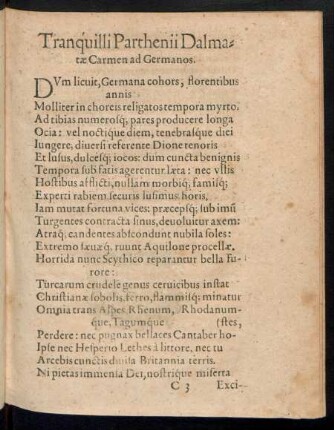 Tranquilli Parthenii Dalma-
tæ Carmen ad Germanos.
DVm licuit, Germana cohors, florentibus
annis
Molliter in choreis religatos tempora myrto,
Ad tibias numerosq; pares producere longa
Ocia: vel noctique diem, tenebrasque diei
Iungere, diuersi referente Dione tenoris
Et lusus, dulcesq; iocos: dum cuncta benignis
Tempora sub fatis agerentur læta: nec vllis
Hostibus afflicti, nullam morbiq; famisq;
Experti rabiem securis lusimus horis,
Iam mutat fortuna vices: præcepsq; sub imsi
Turgentes contracta sinus, deuoluitur axem:
Atraq. candentes abscondunt nubila soles:
Extremo sæuæq. ruunt Aquilone procellæ.
Horrida nunc Scythico reparantur bella fu-
rore:
Turcarum crudele genus ceruicibus instat
Christianæ sobolis, ferro, flammisq; minatur
Omnia trans Alpes Rhenum, Rhodanum-
que, Tagumque (stes,
Perdere: nec pugnax bellaces Cantaber ho-
Ipse nec Hesperio Lethes à littore, nec tu
Arcebis cunctis diuisa Britannia terris.
Ni pietas immensa Dei, nostrique miserta
C 3 Exci-